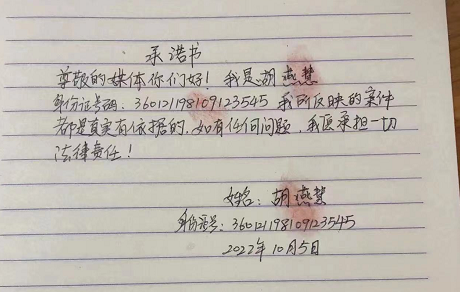 承诺书
尊敬的媒体你们好！我是胡燕慧
身份证号码：360121198109123545 我所反映的案件
都是真实有依据的，如有任何问题，我愿承担一切
法律责任！
姓名：胡燕慧
身份证号：360121198109123545
2022年10月5日